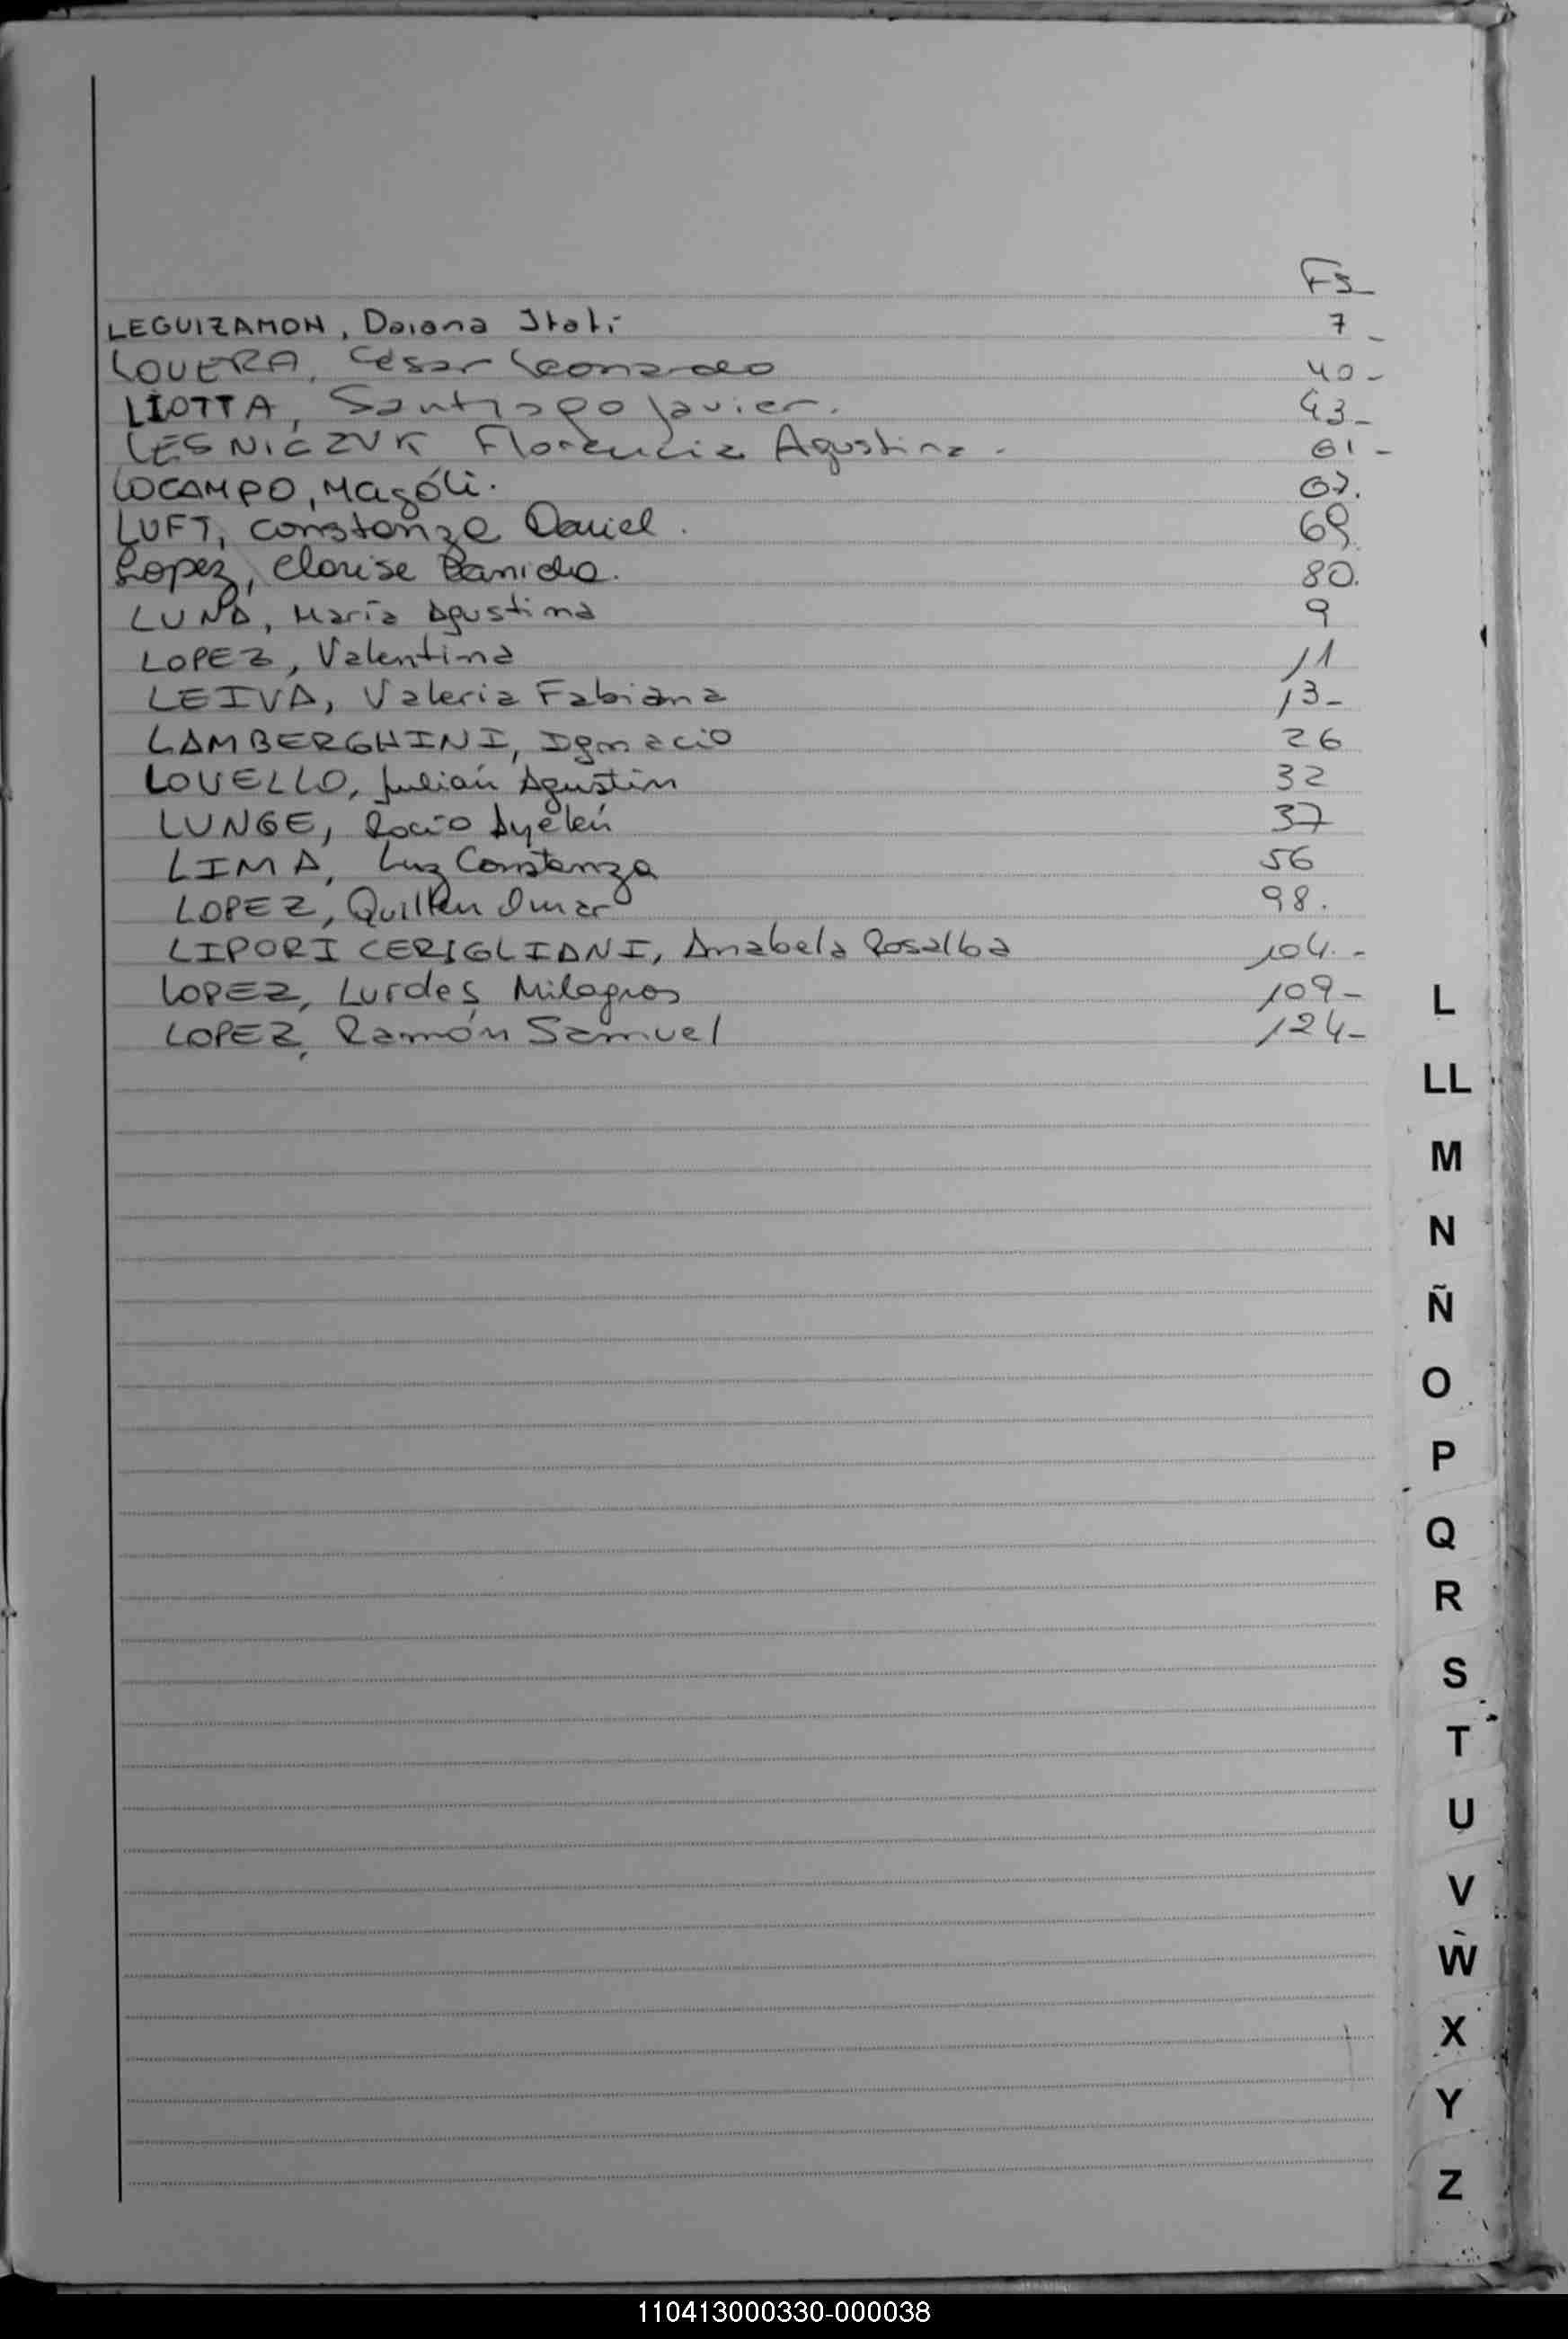 Fs
LEGUIZAMON, Daiana Itatí 7 -
LOVERA, César Leonardo 40 -
LIOTTA, Santiago Javier. 43 -
LESNICZUK Florencia Agustina - 61 -
LOCAMPO, Magóli. 67.
LUFT, Constanze Daniel. 69.
Lopez, Clarise 80.
LUNA, María Agustina 9
LOPEZ, Valentina 11
LEIVA, Valeria Fabiana 13 -
LAMBERGHINI, Ignacio 26
LOVELLO, Julián Agustín 32
LUNGE, Rocío Ayelén 37
LIMA, Luz Constanza 56
LOPEZ, Quillen Omar 98.
LIPORI CERIGLIANI, Anabela Rosalba 104. -
LOPEZ, Lurdes Milagros 109 -
LOPEZ, Ramón Samuel 124 -
L
LL
M
N
Ñ
O
P
Q
R
S
T
U
V
W
X
Y
Z
110413000330-000038